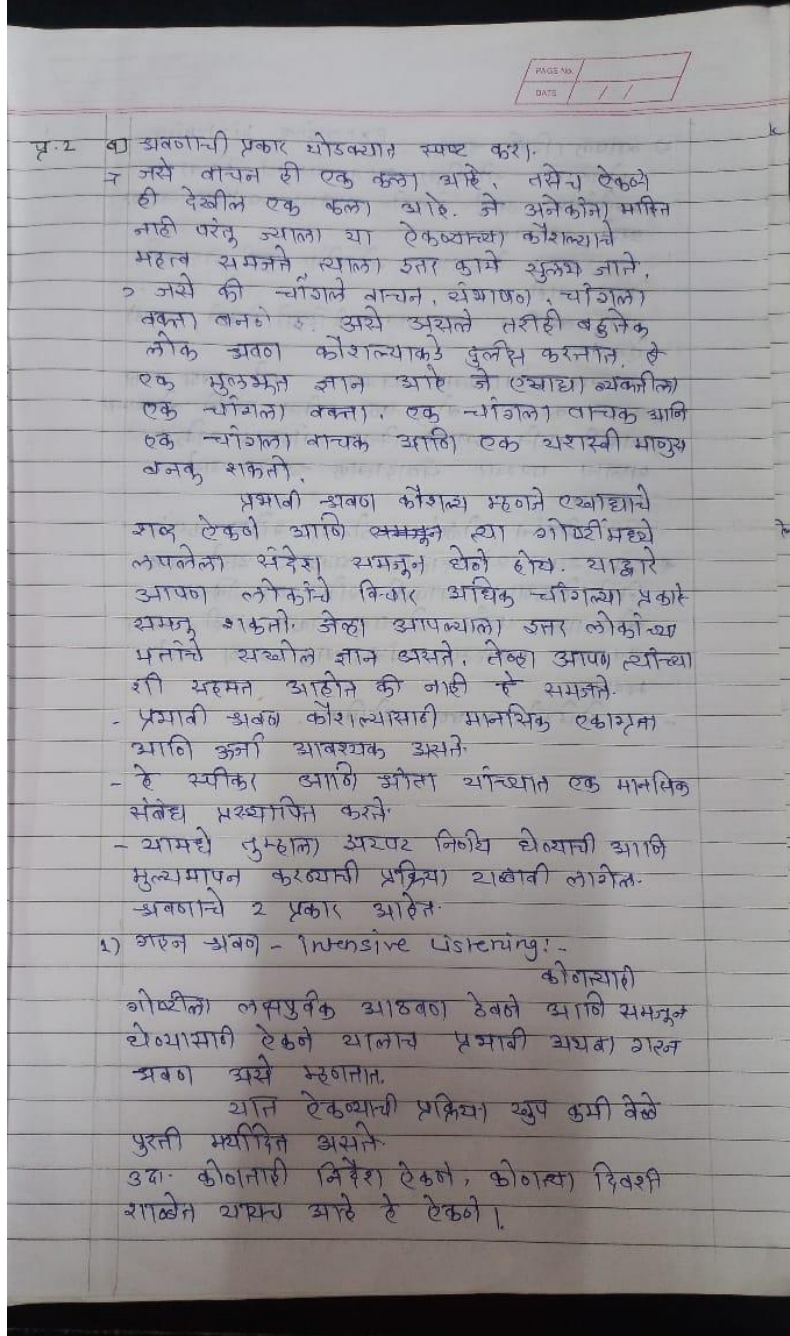 PAGE No.
DATE / /
प्र.2 ब) श्रवणाची प्रकार थोडक्यात स्पष्ट करा.
→ जसे वाचन ही एक कला आहे. तसेच ऐकणे
ही देखील एक कला आहे. जे अनेकांना माहित
नाही परंतु ज्याला या ऐकण्याच्या कौशल्याचे
महत्व समजते त्याला इतर कामे सुलभ जाते.
> जसे की चांगले वाचन, संभाषण, चांगला
वक्ता बनणे असे असले तरीही बहुतेक
लोक श्रवण कौशल्याकडे दुर्लक्ष करतात. हे
एक मुलभूत ज्ञान आहे जे एखाद्या व्यक्तीला
एक चांगला वक्ता, एक चांगला वाचक आनि
एक चांगला वाचक आणि एक यशस्वी माणुस
बनवू शकतो.
प्रभावी श्रवण कौशल्य म्हणजे एखाद्याचे
शब्द ऐकणे आणि समजून त्या गोष्टींमध्ये
लपलेला संदेश समजून घेणे होय. याद्वारे
आपण लोकांचे विचार अधिक चांगल्या प्रकारे
समजू शकतो. जेव्हा आपल्याला इतर लोकांच्या
मतांचे सखोल ज्ञान असते, तेव्हा आपण त्यांच्या
शी सहमत आहोत की नाही हे समजते.
- प्रभावी श्रवण कौशल्यासाठी मानसिक एकाग्रता
आणि ऊर्जा आवश्यक असते.
- हे स्पीकर आणि श्रोता यांच्यात एक मानसिक
संबंध प्रस्थापित करते.
- यामधे तुम्हाला निर्णय घेण्याची आणि
मुल्यमापन करण्याची प्रक्रिया टाळावी लागेल.
श्रवणाचे 2 प्रकार आहेत.
1) गहन श्रवण - Intensive Listening:-
कोणत्याही
गोष्टीला लक्षपुर्वक आठवण ठेवणे आणि समजून
घेण्यासाठी ऐकने यालाच प्रभावी अथवा गहन
श्रवण असे म्हणतात.
यात ऐकण्याची प्रक्रिया खुप कमी वेळे
पुरती मर्यादित असते.
उदा. कोणताही निर्देश ऐकणे, कोणत्या दिवशी
शाळेत यायच आहे हे ऐकणे।.